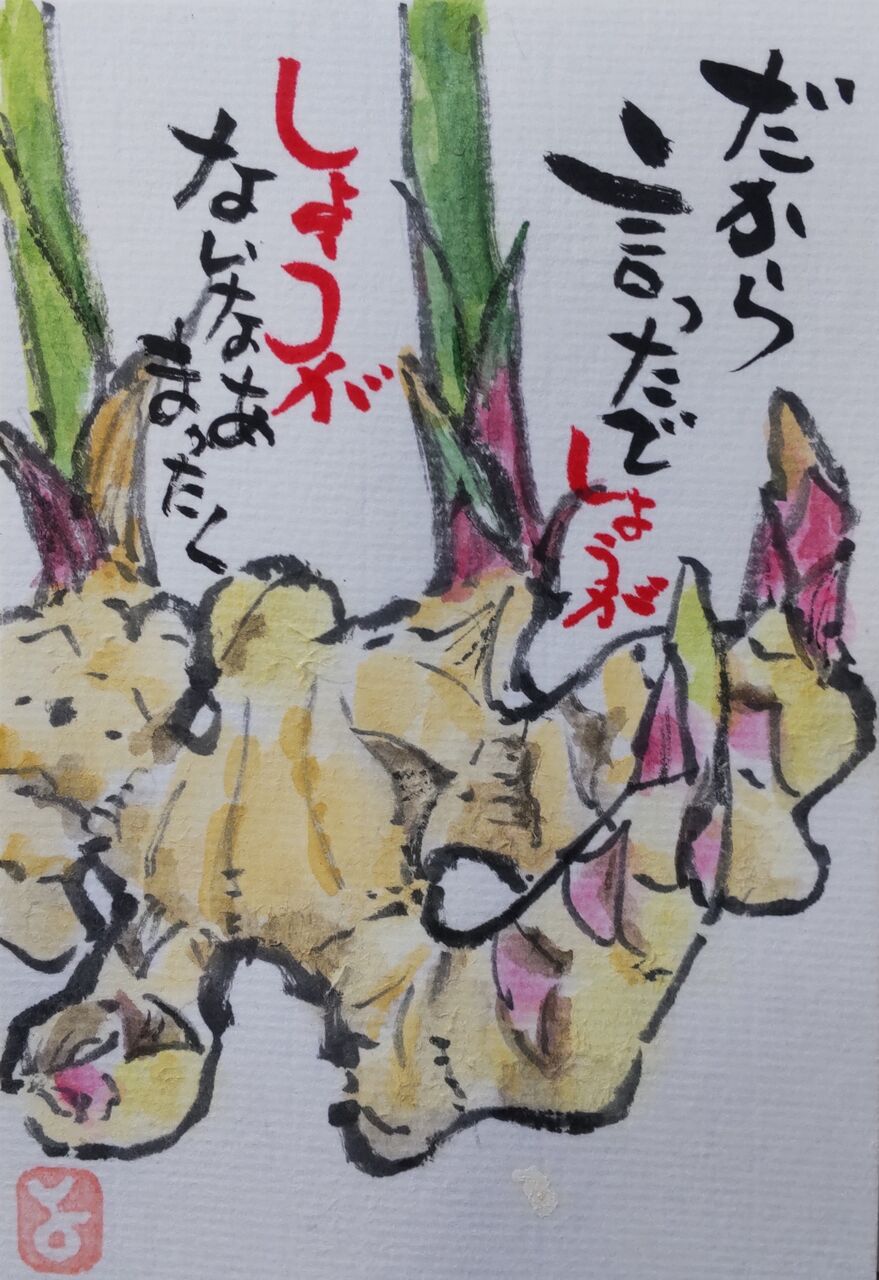 だから
言ったでしょうが
しょうが
ないなあ
まったく